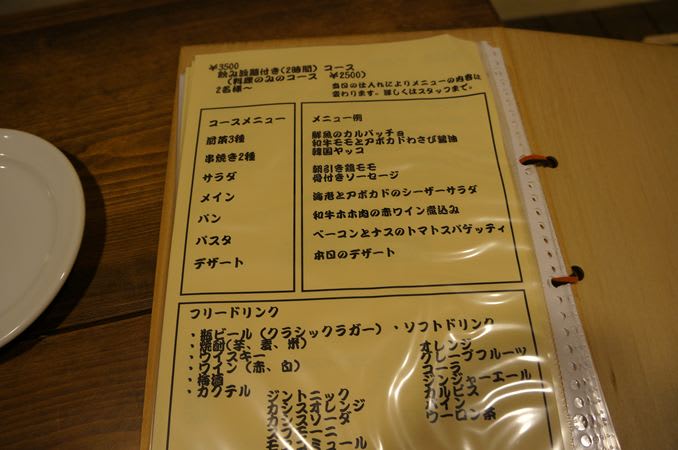 ¥3500
飲み放題付き(2時間) コース
(料理のみのコース ¥2500)
2名様〜
当日の仕入れによりメニューの内容は
変わります。詳しくはスタッフまで。
コースメニュー
前菜3種
串焼き2種
サラダ
メイン
パン
パスタ
デザート
メニュー例
鮮魚のカルパッチョ
和牛モモとアボカドわさび醤油
韓国ヤッコ
朝引き鶏モモ
骨付きソーセージ
海老とアボカドのシーザーサラダ
和牛ホホ肉の赤ワイン煮込み
ベーコンとナスのトマトスパゲッティ
本日のデザート
フリードリンク
・瓶ビール(クラシックラガー)
・焼酎(芋、麦、米)
・ウイスキー
・ワイン(赤、白)
・梅酒
・カクテル
ジントニック
カシスオレンジ
カシスソーダ
・ソフトドリンク
オレンジ
グレープフルーツ
コーラ
ジンジャーエール
カルピス
ウーロン茶